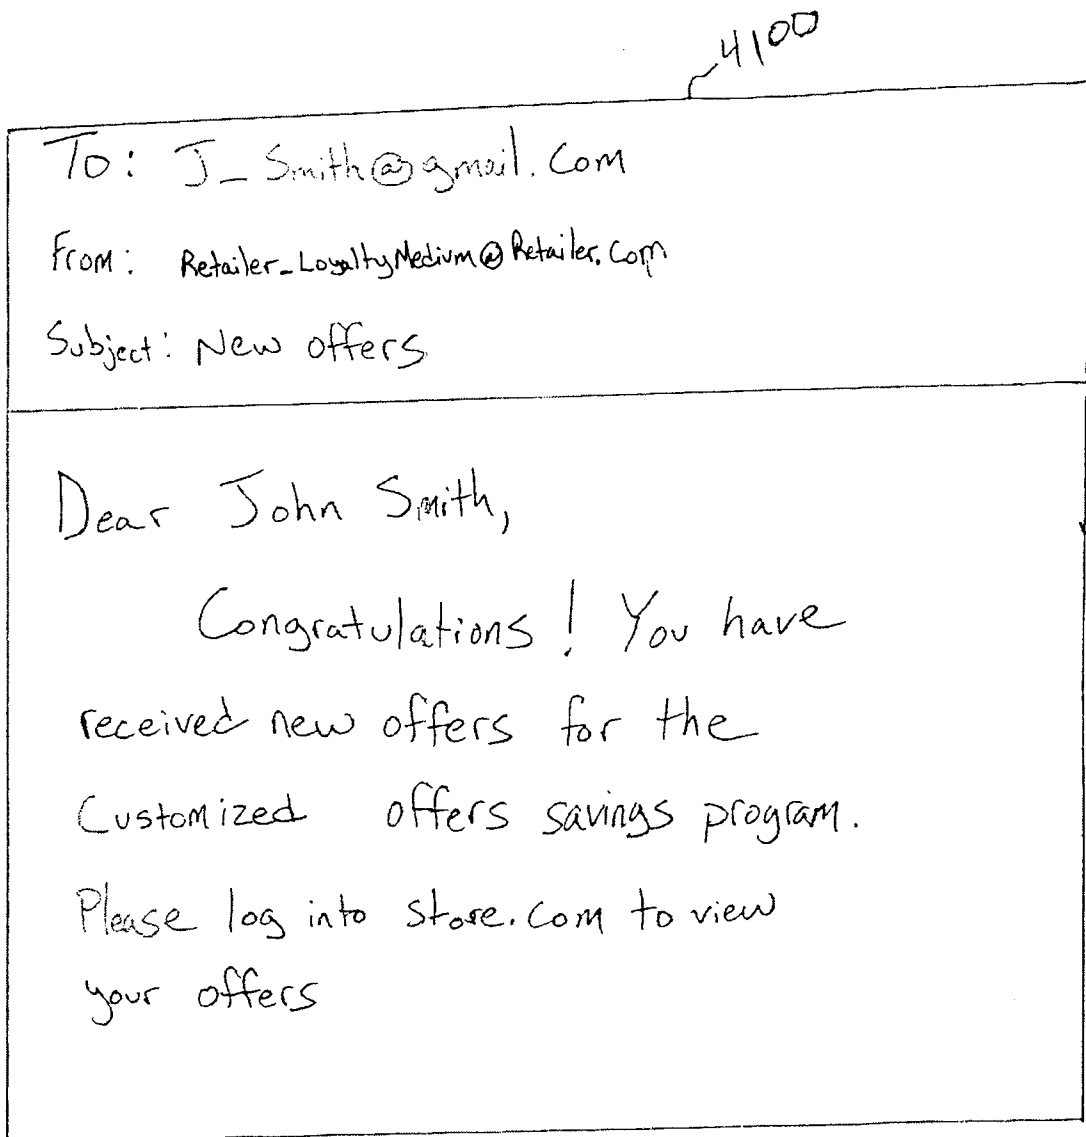 4100
To: J_Smith@gmail.com
From: Retailer_LoyaltyMedium@Retailer.com
Subject: New offers
Dear John Smith,
Congratulations! You have
received new offers for the
Customized offers savings program.
Please log into store.com to view
your offers